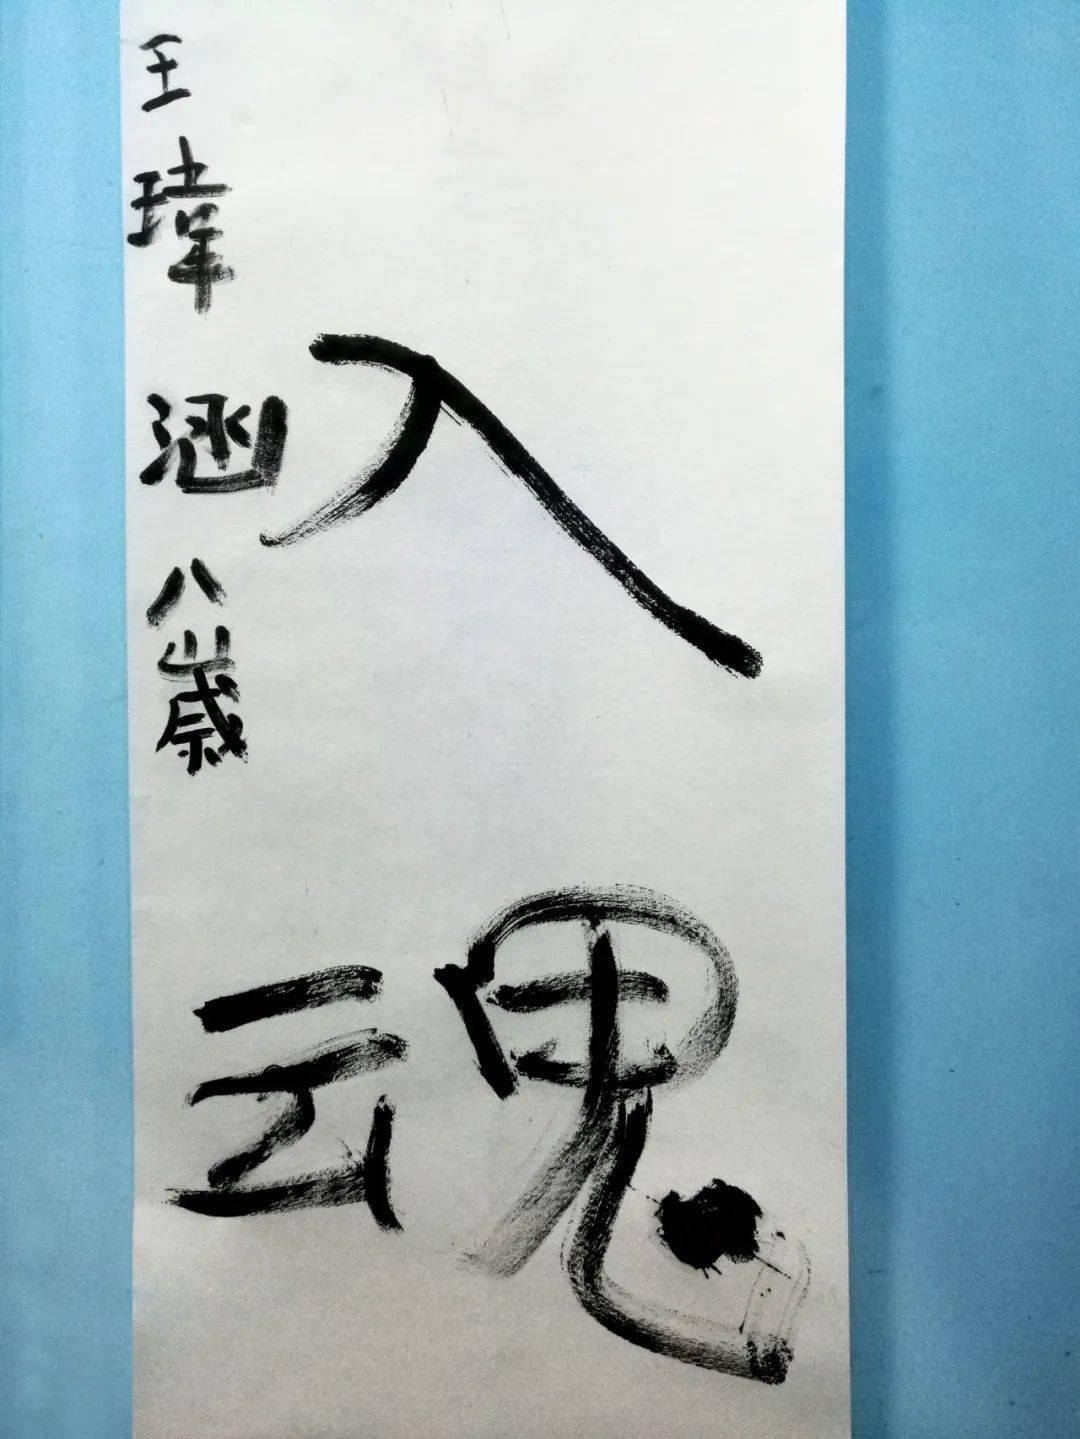 入魂
王瑋涵八歲